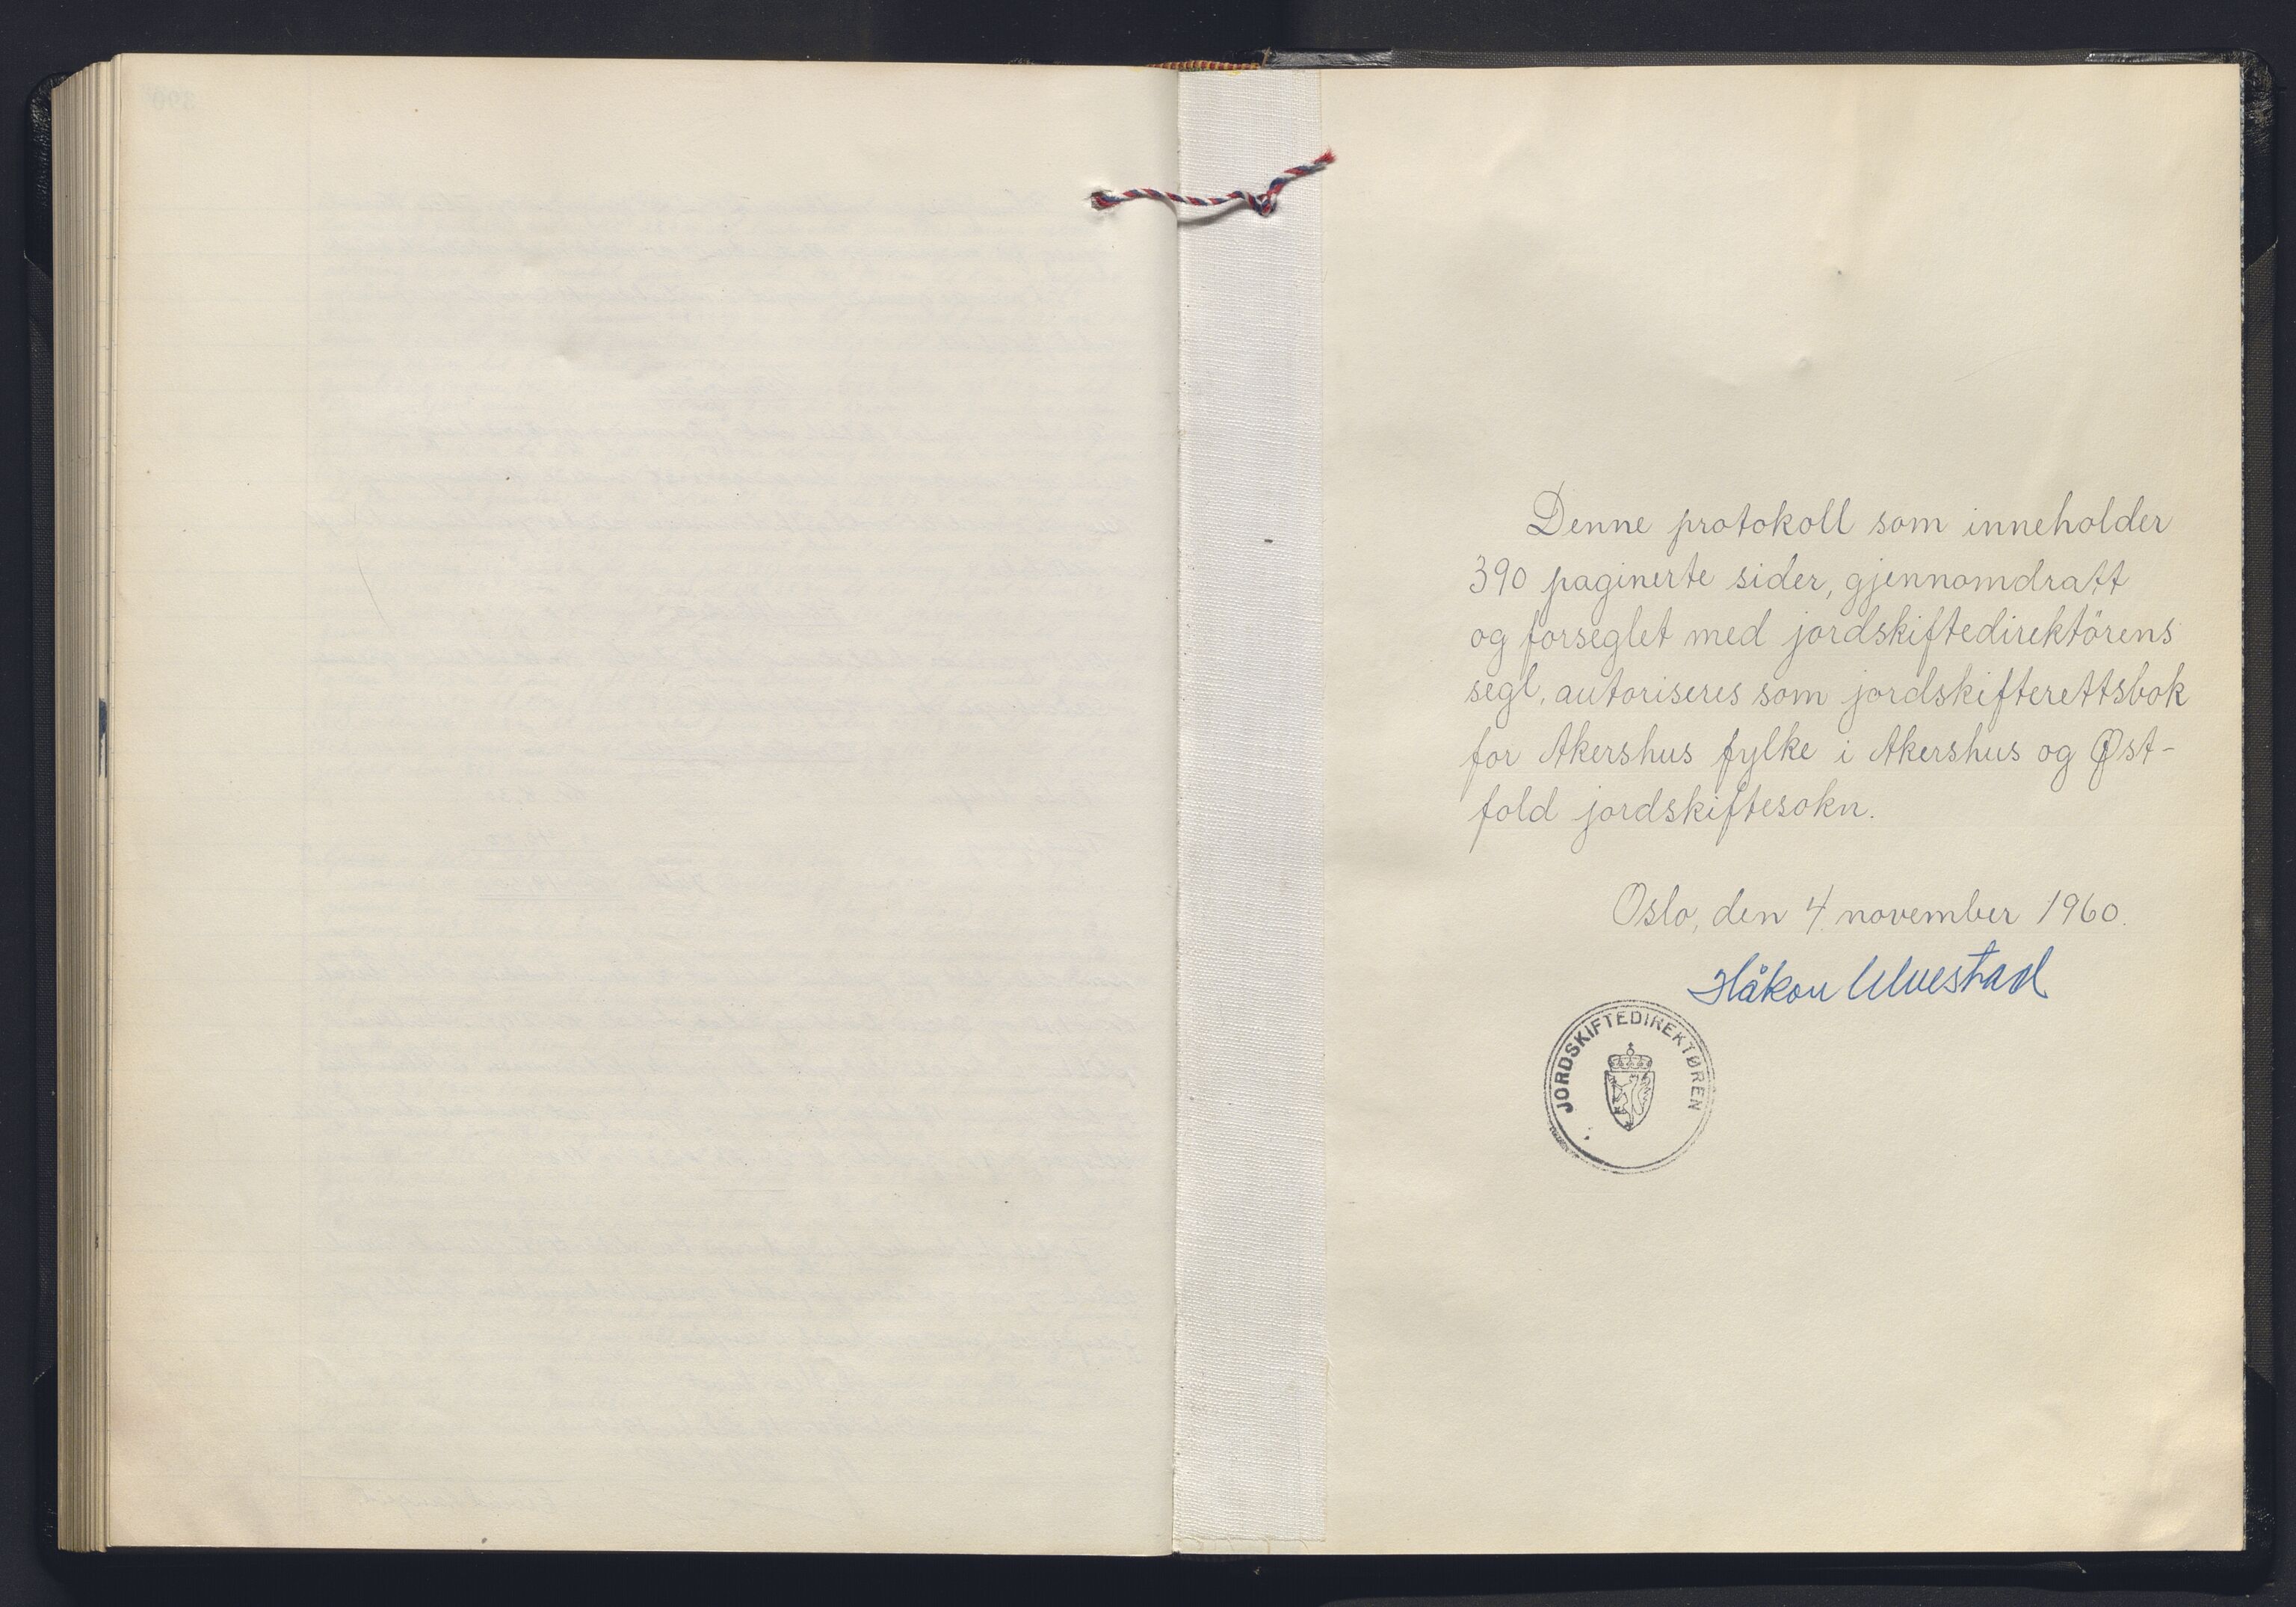 Denne protokoll som inneholder
390 paginerte sider, gjennomdratt
og forseglet med jordskiftedirektörens
segl, autoriseres som jordskifterettsbok
for Akershus fylke i Akershus og Øst-
fold jordskiftesokn.
Oslo, den 4. november 1960.
Håkon Ulvestad
JORDSKIFTEDIREKTØREN